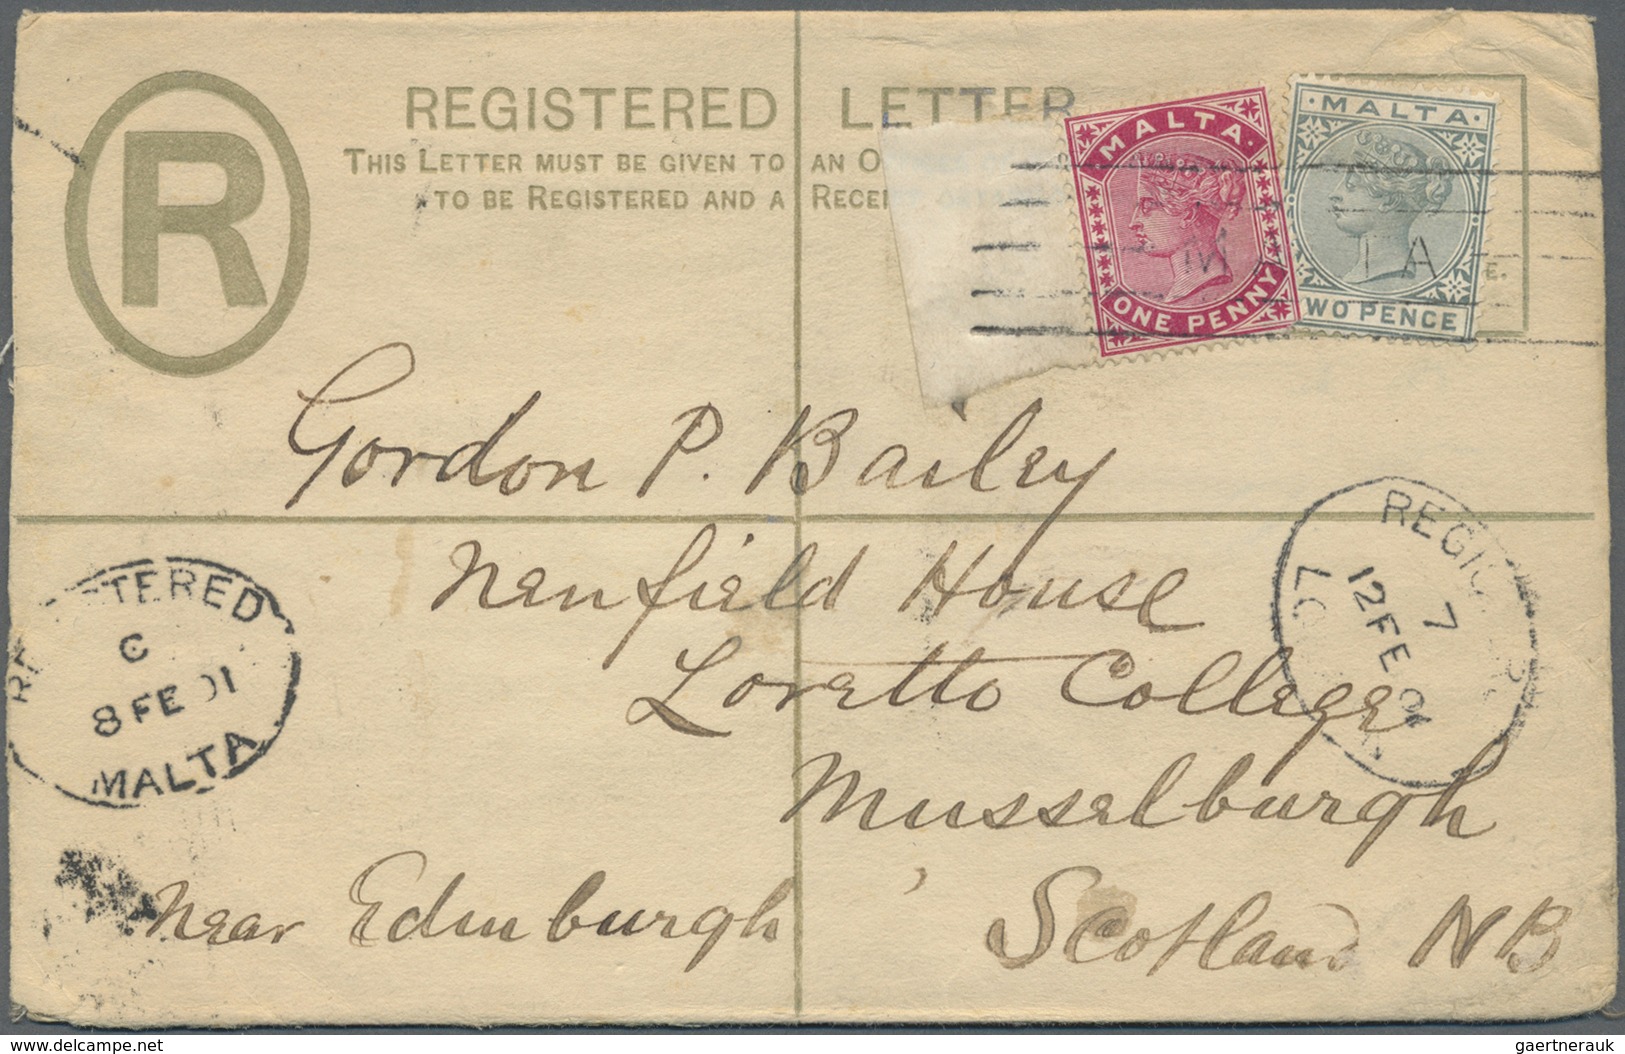 REGISTERED LETTER
THIS LETTER MUST BE GIVEN TO AN
TO BE REGISTERED AND A
R
MALTA
ONE PENNY
MALTA
WO PENCE
Gordon P. Bailey
Newfield House
Loretto College
Musselburgh
Scotland NB
Near Edinburgh
C
8 FE 01
MALTA
7
12 FE 01
delcampe.net
gaertnerauk